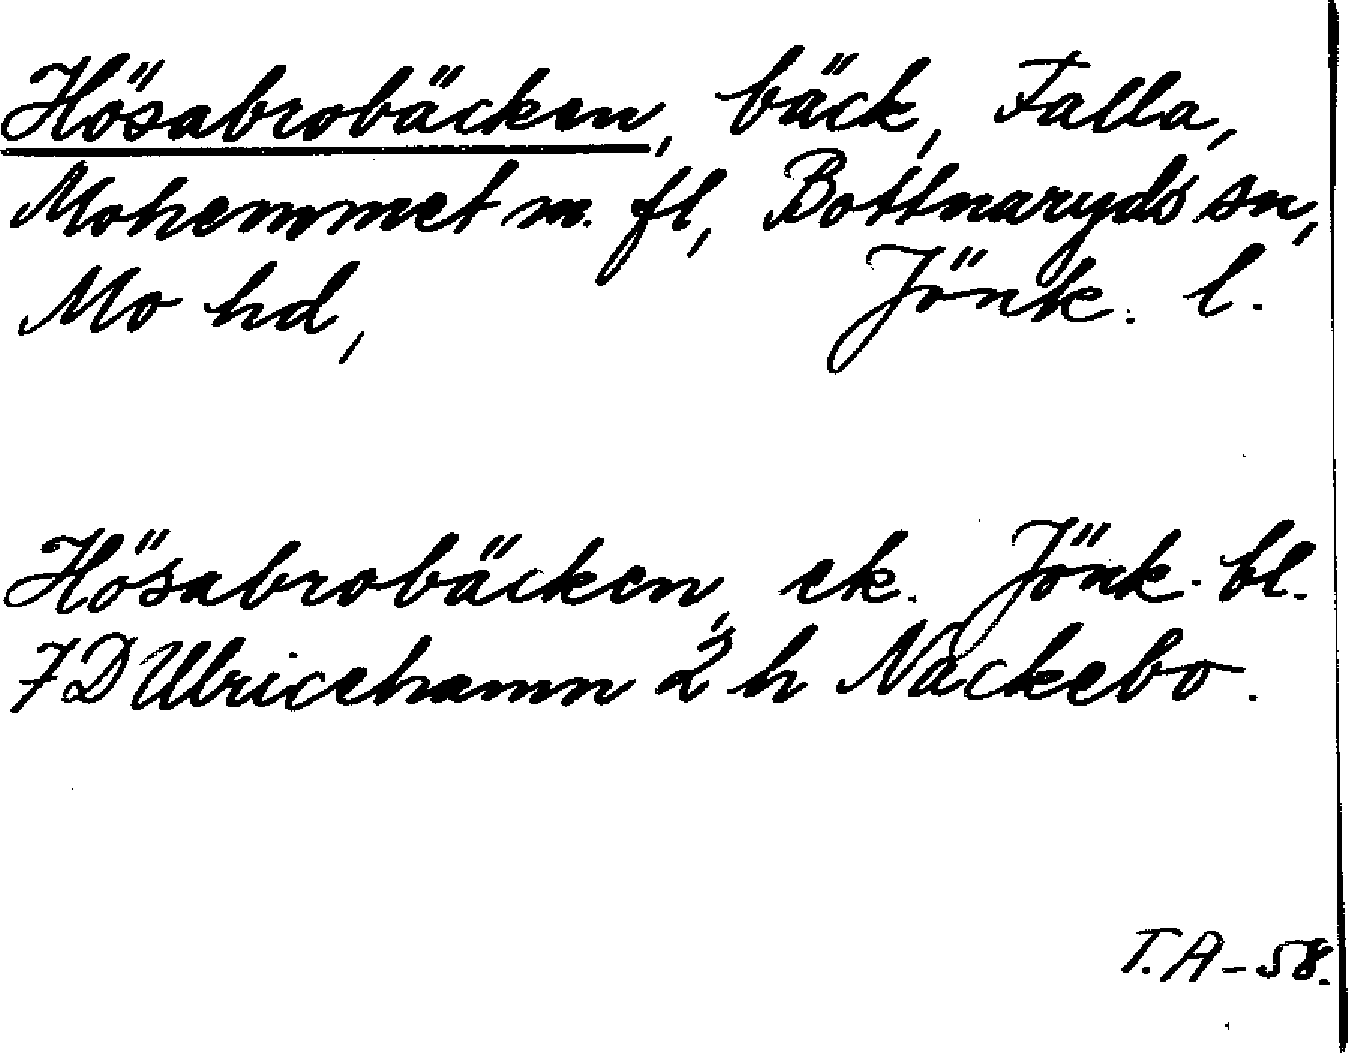 Hösabrobäcken, bäck, Falla,
Mohemmet m. fl, Bottnaryds sn,
Mo hd, Jönk. l.
Hösabrobäcken, ek. Jönk. bl.
7D Ulricehamn 2 h Näckebo.
T.A-58.